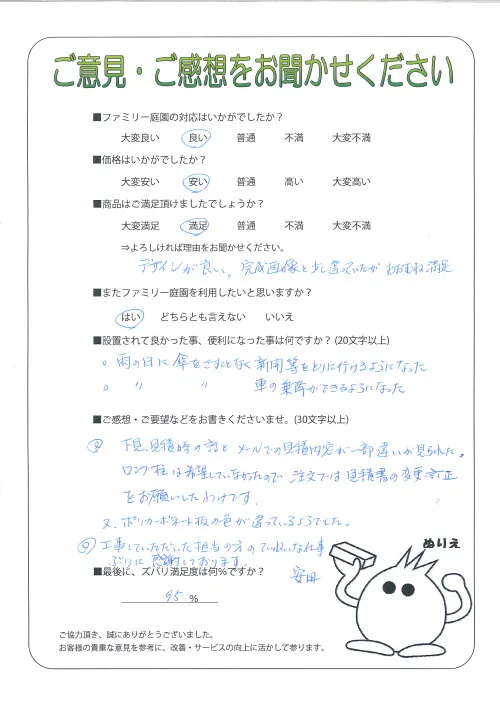 ご意見・ご感想をお聞かせください
■ファミリー庭園の対応はいかがでしたか？
大変良い 良い 普通 不満 大変不満
■価格はいかがでしたか？
大変安い 安い 普通 高い 大変高い
■商品はご満足頂けましたでしょうか？
大変満足 満足 普通 不満 大変不満
⇒よろしければ理由をお聞かせください。
デザインが良い。完成画像と少し違っていたが おおむね満足
■またファミリー庭園を利用したいと思いますか？
はい どちらとも言えない いいえ
■設置されて良かった事、便利になった事は何ですか？(20文字以上)
。雨の日に傘をさすことなく新聞等をとりに行けるようになった
。 〃 〃 車の乗降ができるようになった
■ご感想・ご要望などをお書きくださいませ。(30文字以上)
下見、見積時の話とメールでの見積内容が一部違いが見られた。
ロング柱は希望していなかったので 注文では見積書の変更訂正
をお願いしたわけです。
又、ポリカーボネート板の色が違っているようでした。
工事していただいた担当の方のていねいな仕事
ぶりに感謝しております。
ぬりえ
■最後に、ズバリ満足度は何%ですか？
安田
95 %
ご協力頂き、誠にありがとうございました。
お客様の貴重な意見を参考に、改善・サービスの向上に活かして参ります。